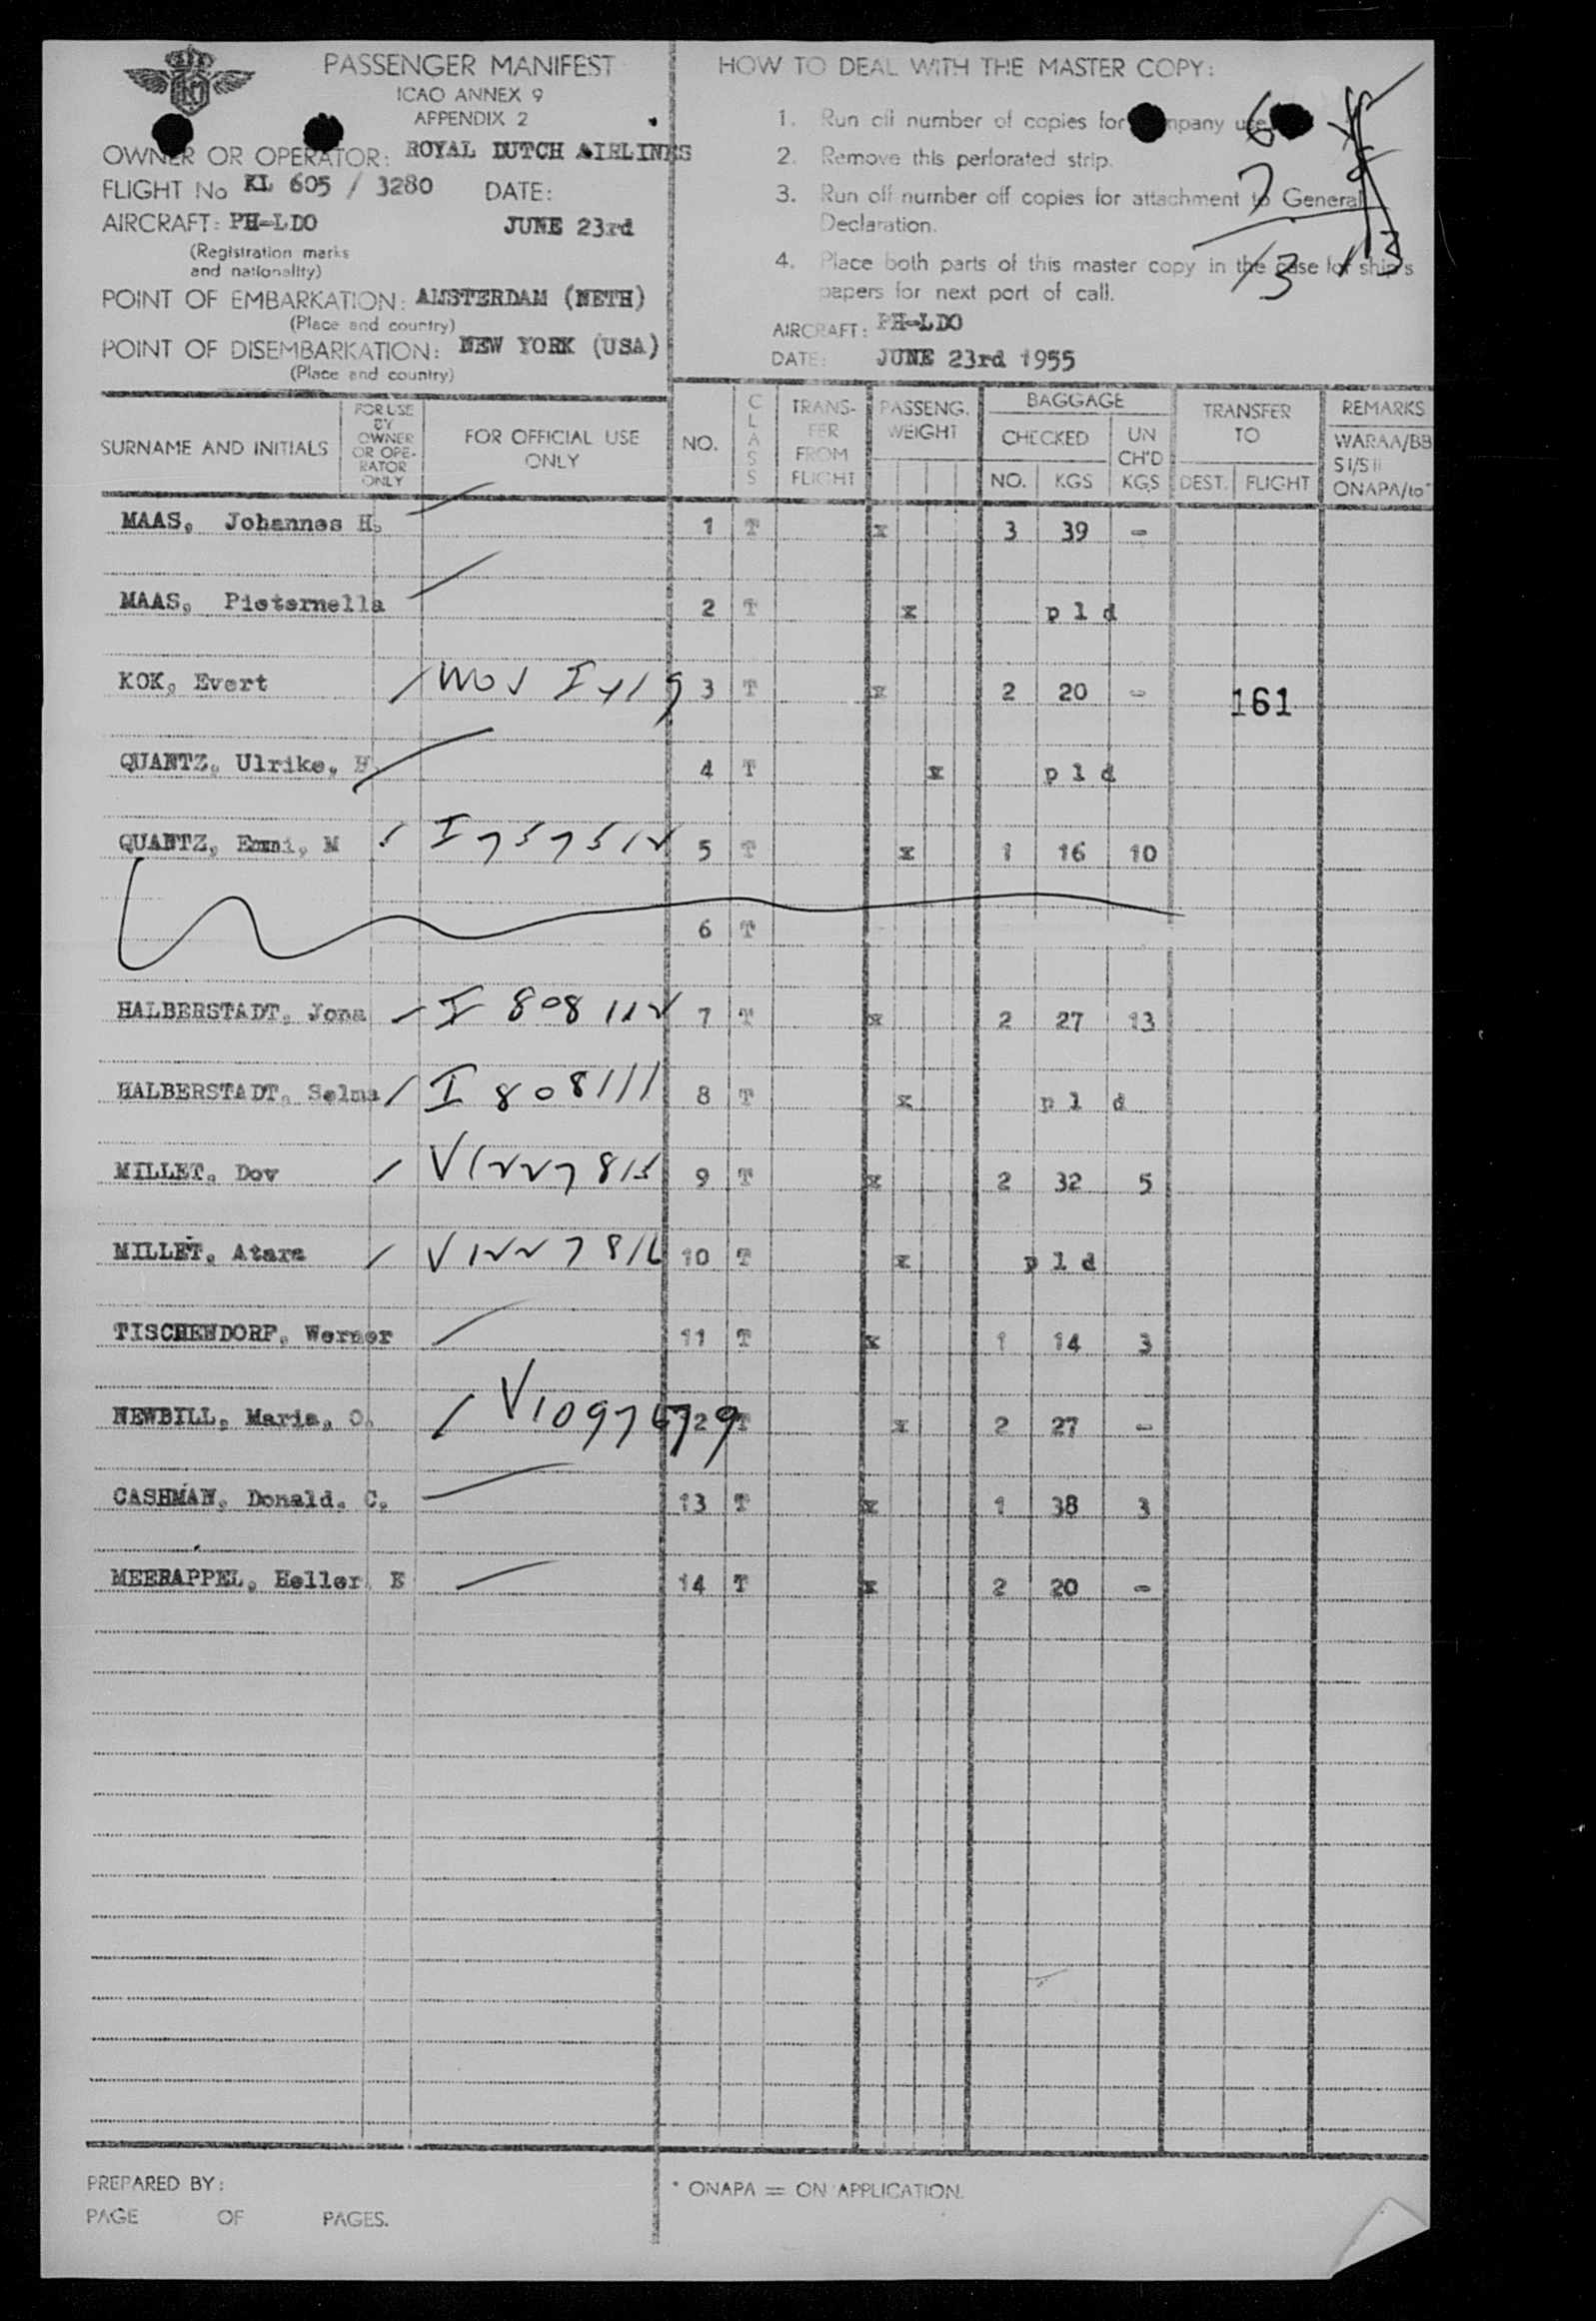 PASSENGER MANIFEST
ICAO ANNEX 9
APPENDIX 2
OWNER OR OPERATOR: ROYAL DUTCH AIRLINES
FLIGHT No KL 605 / 3280 DATE:
AIRCRAFT: PH-LDO JUNE 23rd
(Registration marks
and nationality)
POINT OF EMBARKATION: AMSTERDAM (NETH)
(Place and country)
POINT OF DISEMBARKATION: NEW YORK (USA)
(Place and country)
HOW TO DEAL WITH THE MASTER COPY:
1. Run off number of copies for company use
2. Remove this perforated strip.
3. Run off number off copies for attachment to General
Declaration.
4. Place both parts of this master copy in the case for ship's
papers for next port of call.
6
7
13
13
AIRCRAFT: PH-LDO
DATE: JUNE 23rd 1955
SURNAME AND INITIALS
FOR USE BY OWNER OR OPE-RATOR ONLY
FOR OFFICIAL USE ONLY
NO.
CLASS
TRANS-FER FROM FLIGHT
PASSENG. WEIGHT
BAGGAGE
CHECKED
NO. KGS
UN CH'D KGS
TRANSFER TO
DEST. FLIGHT
REMARKS
WARAA/BB
SI/SII
ONAPA/to*
MAAS, Johannes H. 1 T x 3 39 -
MAAS, Pieternella 2 T x p l d
KOK, Evert 3 T x 2 20 - 161
QUANTZ, Ulrike, H 4 T x p l d
QUANTZ, Emmi, M I 757512 5 T x 1 16 10
6 T
HALBERSTADT, Jona I 808112 7 T x 2 27 13
HALBERSTADT, Selma I 808111 8 T x p l d
MILLET, Dov V1227815 9 T x 2 32 5
MILLET, Atara V1227816 10 T x p l d
TISCHENDORF, Werner 11 T x 1 14 3
NEWBILL, Maria, O. V1097679 12 T x 2 27 -
CASHMAN, Donald, C. 13 T x 1 38 3
MEERAPPEL, Heller E 14 T x 2 20 -
PREPARED BY:
PAGE OF PAGES.
* ONAPA = ON APPLICATION.